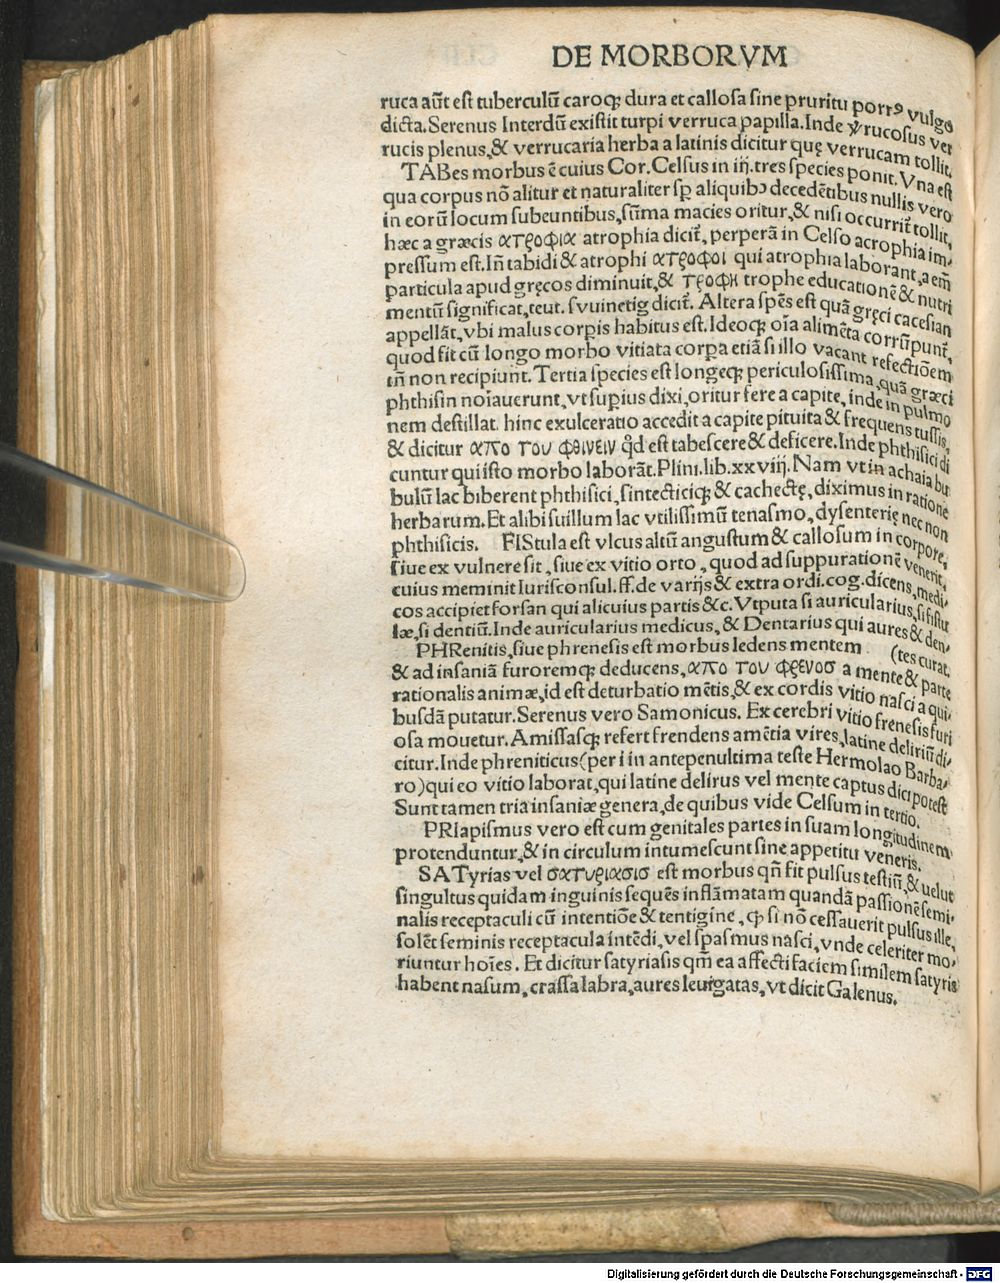 DE MORBORVM
ruca aūt est tuberculū caroq; dura et callosa sine pruritu porrꝰ vulgo
dicta.Serenus Interdū existit turpi verruca papilla.Inde ꝟrucosus ver
rucis plenus,& verrucaria herba a latinis dicitur quę verrucam tollit.
TABes morbus ē cuius Cor.Celsus in iij.tres species ponit.Vna est
qua corpus nō alitur et naturaliter sꝑ aliquibꝰ decedētibus nullis vero
in eorū locum subeuntibus,sūma macies oritur,& nisi occurrit̄ tollit,
hæc a græcis ατροφια atrophia dicit̄,perperā in Celso acrophia im-
pressum est.In̄ tabidi & atrophi ατροφοι qui atrophia laborant,a em̄
particula apud gręcos diminuit,& τροφη trophe educationē & nutri
mentū significat,teut. svuinetig dicit̄. Altera spēs est quā gręci cacesian
appellāt,vbi malus corpis habitus est.Ideoq; oīa alimēta corrūpunt̄,
quod fit cū longo morbo vitiata corpa etiā si illo vacant refectiōem
tn̄ non recipiunt.Tertia species est longeq; periculosissima,quā græci
phthisin noiauerunt,vt supius dixi,oritur fere a capite,inde in pulmo
nem destillat. hinc exulceratio accedit a capite pituita & frequens tussis,
& dicitur απο του φθινειν qd̄ est tabescere & deficere.Inde phthisici di
cuntur qui isto morbo laborāt.Plini.lib.xxviij.Nam vt in achaia bu
bulū lac biberent phthisici,sintecticiq; & cachectę,diximus in ratione
herbarum.Et alibi suillum lac vtilissimū tenasmo,dysenterię nec non
phthisicis. FIStula est vlcus altū angustum & callosum in corpore,
siue ex vulnere sit,siue ex vitio orto,quod ad suppurationē venerit,
cuius meminit Iurisconsul.ff.de varijs & extra ordi.cog.dicens,medi-
cos accipiet forsan qui alicuius partis &c.Vtputa si auricularius,si fistu
læ,si dentiū.Inde auricularius medicus,& Dentarius qui aures & den-
PHRenitis,siue phrenesis est morbus ledens mentem (tes curat.
& ad insaniā furoremq; deducens,απο του φρενοσ a mente & parte
rationalis animæ,id est deturbatio mētis,& ex cordis vitio nasci a qui-
busdā putatur.Serenus vero Samonicus. Ex cerebri vitio frenesis furi
osa mouetur.Amissasq; refert frendens amētia vires,latine deliriū di-
citur.Inde phreniticus(per i in antepenultima teste Hermolao Barba-
ro)qui eo vitio laborat,qui latine delirus vel mente captus dici potest
Sunt tamen tria insaniæ genera,de quibus vide Celsum in tertio.
PRIapismus vero est cum genitales partes in suam longitudinem
protenduntur,& in circulum intumescunt sine appetitu veneris.
SATyrias vel σατυριασισ est morbus qn̄ fit pulsus testiū,& uelut
singultus quidam inguinis sequēs inflāmatam quandā passionē semi-
nalis receptaculi cū intentiōe & tentigine,ꝙ si nō cessauerit pulsus ille,
solēt seminis receptacula intēdi,vel spasmus nasci,vnde celeriter mo-
riuntur hoīes. Et dicitur satyriasis qm̄ ea affecti faciem similem satyris
habent nasum,crassa labra,aures leuigatas,vt dicit Galenus.
Digitalisierung gefördert durch die Deutsche Forschungsgemeinschaft - DFG